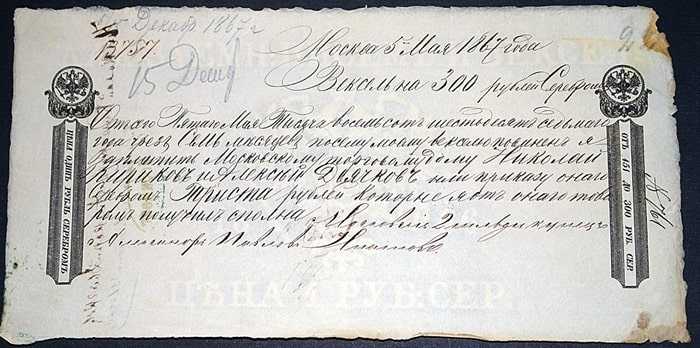 5 Декабр 1867 г
15 Декаб
Москва 5 Мая 1867 года
Вексель на 300 рублей Серебром
Отъ сего Пятаго Мая Тысяча восемьсотъ шестьдесятъ седьмаго
года чрезъ Семь месяцевъ по сему моему векселю повиненъ я
заплатить Московскому торговому дому Николай
Кириковъ и Алексѣй Дьячковъ или приказу онаго
Триста рублей которые я отъ онаго това
ромъ получилъ сполна Московский 2 гильдии купецъ
Павловъ
ЦѢНА ОДИНЪ РУБЛЬ СЕРЕБРОМЪ
ОТЪ 451 ДО 300 РУБ. СЕР.
ЦѢНА 1 РУБ: СЕР.